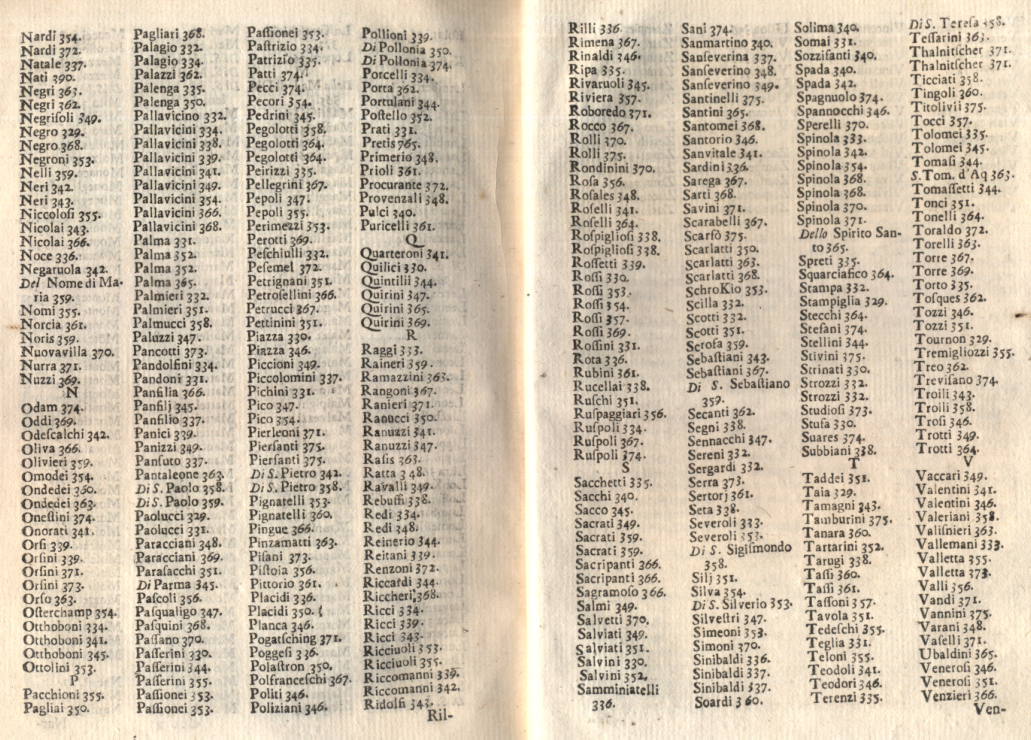 Nardi 354.
Nardi 372.
Natale 337.
Nati 390.
Negri 363.
Negri 362.
Negrisoli 349.
Negro 329.
Negro 368.
Negroni 353.
Nelli 359.
Neri 342.
Neri 343.
Niccolosi 355.
Nicolai 343.
Nicolai 366.
Noce 336.
Negaruola 342.
Del Nome di Ma-
ria 359.
Nomi 355.
Norcia 361.
Noris 359.
Nuovavilla 370.
Nurra 371.
Nuzzi 369.
N
Odam 374.
Oddi 369.
Odescalchi 342.
Oliva 366.
Olivieri 359.
Omodei 354.
Ondedei 360.
Ondedei 363.
Onestini 374.
Onorati 341.
Orsi 339.
Orsini 339.
Orsini 371.
Orsini 373.
Orso 363.
Osterchamp 354.
Otthoboni 334.
Otthoboni 341.
Otthoboni 345.
Ottolini 353.
P
Pacchioni 355.
Pagliai 350.
Pagliari 368.
Palagio 332.
Palagio 334.
Palazzi 362.
Palenga 335.
Palenga 350.
Pallavicino 332.
Pallavicini 334.
Pallavicini 338.
Pallavicini 339.
Pallavicini 341.
Pallavicini 349.
Pallavicini 354.
Pallavicini 366.
Pallavicini 368.
Palma 331.
Palma 352.
Palma 352.
Palma 365.
Palmieri 332.
Palmieri 351.
Palmucci 358.
Paluzzi 347.
Pancotti 373.
Pandolfini 334.
Pandoni 331.
Panfilia 366.
Panfilj 345.
Panfilio 337.
Panici 339.
Panizzi 349.
Pansuto 337.
Pantaleone 363.
Di S. Paolo 358.
Di S. Paolo 359.
Paolucci 329.
Paolucci 331.
Paracciani 348.
Paracciani 369.
Parasacchi 351.
Di Parma 345.
Pascoli 356.
Pasqualigo 347.
Pasquini 368.
Passano 370.
Passerini 330.
Passerini 344.
Passerini 355.
Passionei 353.
Passionei 353.
Passionei 353.
Pastrizio 334.
Patrizio 335.
Patti 374.
Pecci 374.
Pecori 354.
Pedrini 345.
Pegolotti 358.
Pegolotti 364.
Pegolotti 364.
Peirizzi 335.
Pellegrini 367.
Pepoli 347.
Pepoli 355.
Perimezzi 353.
Perotti 369.
Peschiulli 332.
Pesemel 372.
Petrignani 351.
Petrosellini 366.
Petrucci 367.
Pettinini 351.
Piazza 330.
Piazza 346.
Piccioni 349.
Piccolomini 337.
Pichini 331.
Pico 347.
Pico 354.
Pierleoni 371.
Piersanti 375.
Piersanti 375.
Di S. Pietro 342.
Di S. Pietro 358.
Pignatelli 353.
Pignatelli 360.
Pingue 366.
Pinzamatti 363.
Pisani 373.
Pistoia 356.
Pittorio 361.
Placidi 336.
Placidi 350.
Planca 346.
Pogatsching 371.
Poggesi 336.
Polastron 350.
Polfranceschi 367.
Politi 346.
Poliziani 346.
Pollioni 339.
Di Pollonia 350.
Di Pollonia 374.
Porcelli 334.
Porta 362.
Portulani 344.
Postello 352.
Prati 331.
Pretis 765.
Primerio 348.
Prioli 361.
Procurante 372.
Provenzali 348.
Pulci 340.
Puricelli 361.
Q
Quarteroni 341.
Quilici 330.
Quintilii 344.
Quirini 347.
Quirini 365.
Quirini 369.
R
Raggi 333.
Raineri 359.
Ramazzini 363.
Rangoni 367.
Ranieri 371.
Ranucci 350.
Ranuzzi 341.
Ranuzzi 347.
Rasis 363.
Ratta 348.
Ravalli 349.
Rebuffi 338.
Redi 334.
Redi 348.
Reinerio 344.
Reitani 339.
Renzoni 372.
Riccardi 344.
Riccheri 368.
Ricci 334.
Ricci 339.
Ricci 343.
Ricciuoli 353.
Ricciuoli 355.
Riccomanni 339.
Riccomanni 342.
Ridolfi 343.
Ril-
Rilli 336.
Rimena 367.
Rinaldi 346.
Ripa 335.
Rivaruoli 345.
Riviera 357.
Roboredo 371.
Rocco 367.
Rolli 370.
Rolli 375.
Rondinini 370.
Rosa 356.
Rosales 348.
Roselli 341.
Roselli 364.
Rospigliosi 338.
Rospigliosi 338.
Rossetti 339.
Rossi 330.
Rossi 353.
Rossi 354.
Rossi 357.
Rossi 369.
Rossini 331.
Rota 336.
Rubini 361.
Rucellai 338.
Ruschi 351.
Ruspaggiari 356.
Ruspoli 334.
Ruspoli 367.
Ruspoli 374.
S
Sacchetti 335.
Sacchi 340.
Sacco 345.
Sacrati 349.
Sacrati 359.
Sacrati 359.
Sacripanti 366.
Sacripanti 366.
Sagramoso 366.
Salmi 349.
Salvetti 370.
Salviati 349.
Salviati 351.
Salvini 330.
Salvini 352.
Samminiatelli
336.
Sani 374.
Sanmartino 340.
Sanseverina 337.
Sanseverino 348.
Sanseverino 349.
Santinelli 375.
Santini 365.
Santomei 368.
Santorio 346.
Sanvitale 341.
Sardini 336.
Sarega 367.
Sarti 368.
Savini 371.
Scarabelli 367.
Scarfò 375.
Scarlatti 350.
Scarlatti 363.
Scarlatti 368.
SchroKio 353.
Scilla 332.
Scotti 332.
Scotti 351.
Scrofa 359.
Sebastiani 343.
Sebastiani 367.
Di S. Sebastiano
359.
Secanti 362.
Segni 338.
Sennacchi 347.
Sereni 332.
Sergardi 332.
Serra 373.
Sertorj 361.
Seta 338.
Severoli 333.
Severoli 353.
Di S. Sigismondo
358.
Silj 351.
Silva 354.
Di S. Silverio 353.
Silvestri 347.
Simeoni 353.
Simoni 370.
Sinibaldi 336.
Sinibaldi 337.
Sinibaldi 337.
Soardi 360.
Solima 340.
Somai 331.
Sozzifanti 340.
Spada 340.
Spada 342.
Spagnuolo 374.
Spannocchi 346.
Sperelli 370.
Spinola 333.
Spinola 342.
Spinola 354.
Spinola 368.
Spinola 368.
Spinola 370.
Spinola 371.
Dello Spirito San-
to 365.
Spreti 335.
Squarciafico 364.
Stampa 332.
Stampiglia 329.
Stecchi 364.
Stefani 374.
Stellini 344.
Stivini 375.
Strinati 330.
Strozzi 332.
Strozzi 332.
Studiosi 373.
Stufa 330.
Suares 374.
Subbiani 338.
T
Taddei 351.
Taia 329.
Tamagni 343.
Tamburini 375.
Tanara 360.
Tartarini 352.
Tarugi 338.
Tassi 360.
Tassi 361.
Tassoni 357.
Tavola 351.
Tedeschi 355.
Teglia 331.
Teloni 355.
Teodoli 341.
Teodori 346.
Terenzi 335.
Di S. Teresa 358.
Tessarini 363.
Thalnitscher 371.
Thalnitscher 371.
Ticciati 358.
Tingoli 360.
Titolivii 375.
Tocci 357.
Tolomei 335.
Tolomei 345.
Tomasi 344.
S. Tom. d'Aq 363.
Tomassetti 344.
Tonci 351.
Tonelli 364.
Toraldo 372.
Torelli 363.
Torre 367.
Torre 369.
Torto 335.
Tosques 362.
Tozzi 346.
Tozzi 351.
Tournon 329.
Tremigliozzi 355.
Treo 362.
Trevisano 374.
Troili 343.
Troili 358.
Trosi 346.
Trotti 349.
Trotti 364.
V
Vaccari 349.
Valentini 341.
Valentini 346.
Valeriani 358.
Valisnieri 363.
Vallemani 333.
Valletta 355.
Valletta 373.
Valli 356.
Vandi 371.
Vannini 375.
Varani 348.
Vaselli 371.
Ubaldini 365.
Venerosi 346.
Venerosi 351.
Venzieri 366.
Ven-